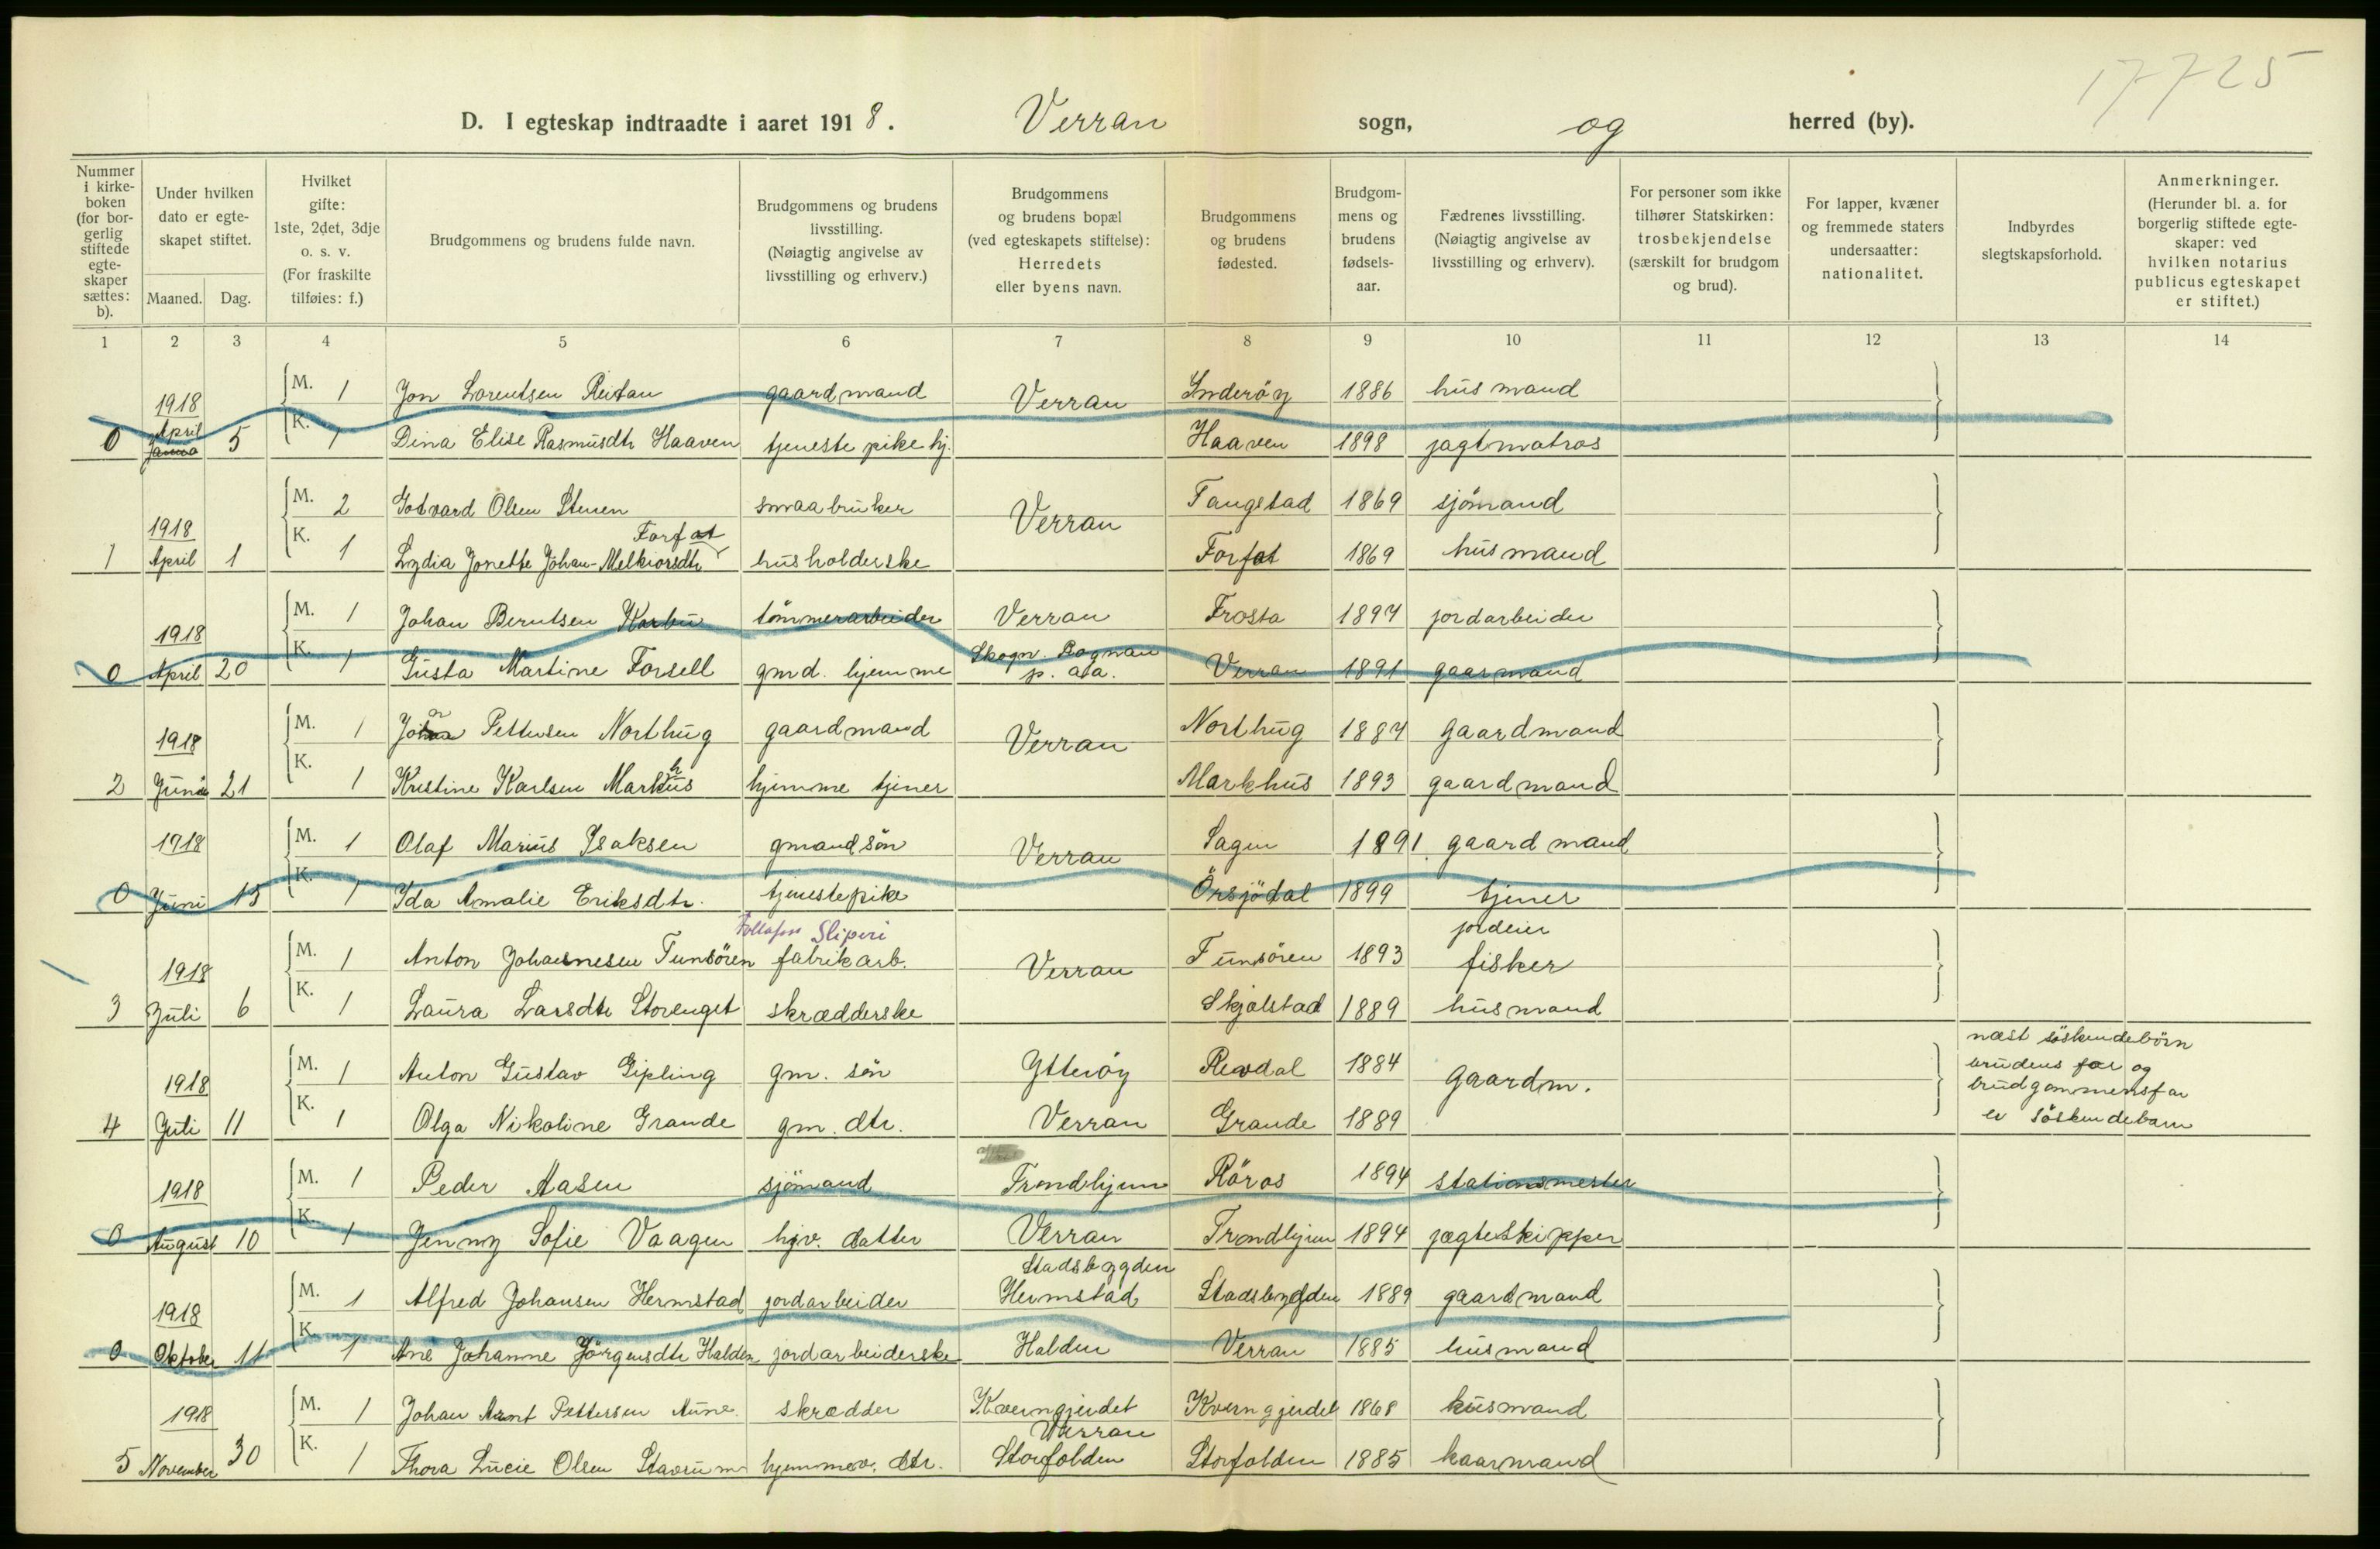 17725
D. I egteskap indtraadte i aaret 1918. Verran sogn, og herred (by).
Nummer i kirkeboken (for borgerlig stiftede egteskaper sættes: b).
Under hvilken dato er egteskapet stiftet.
Maaned. Dag.
Hvilket gifte: 1ste, 2det, 3dje o. s. v. (For fraskilte tilføies: f.)
Brudgommens og brudens fulde navn.
Brudgommens og brudens livsstilling. (Nøiagtig angivelse av livsstilling og erhverv.)
Brudgommens og brudens bopæl (ved egteskapets stiftelse): Herredets eller byens navn.
Brudgommens og brudens fødested.
Brudgommens og brudens fødselsaar.
Fædrenes livsstilling. (Nøiagtig angivelse av livsstilling og erhverv).
For personer som ikke tilhører Statskirken: trosbekjendelse (særskilt for brudgom og brud).
For lapper, kvæner og fremmede staters undersaatter: nationalitet.
Indbyrdes slegtskapsforhold.
Anmerkninger. (Herunder bl. a. for borgerlig stiftede egteskaper: ved hvilken notarius publicus egteskapet er stiftet.)
1 2 3 4 5 6 7 8 9 10 11 12 13 14
1918 M. 1 Jon Lorentsen Reitan gaardmand Verran Inderöy 1886 husmand
0 April 5 K. 1 Dina Elise Rasmusdtr Haaven tjenestepike hj. Haaven 1898 jagtmatros
1918 M. 2 Gotvard Olsen Stenen smaabruker Verran Fangstad 1869 sjömand
Forfot
1 April 1 K. 1 Lydia Jonette Johan-Melkiorsdtr husholderske Forfot 1869 husmand
1918 M. 1 Johan Berntsen Karbu tömmerarbeider Verran Frosta 1894 jordarbeider
0 April 20 K. 1 Gusta Martine Forsell gmd. hjemme Skogn. Rognan p. ata. Verran 1891 gaarmand
1918 M. 1 Johan Pettersen Northug gaardmand Verran Northug 1884 gaardmand
2 Juni 21 K. 1 Kristine Karlsen Markhus hjemme tjener Markhus 1893 gaardmand
1918 M. 1 Olaf Marius Isaksen gmandsön Verran Sagen 1891 gaardmand
0 Juni 15 K. 1 Ida Amalie Eriksdtr. tjenestepike Örsjödal 1899 tjener
Follafoss Sliperi jordeier
1918 M. 1 Anton Johannesen Tunsören fabrikarb. Verran Tunsören 1893 fisker
3 Juli 6 K. 1 Laura Larsdtr Storenget skrædderske Skjelstad 1889 husmand
1918 M. 1 Anton Gustav Gipling gm. sön Ytteröy Reodal 1884 gaardm. næst söskendebörn
brudens far og
brudgommens far
4 Juli 11 K. 1 Olga Nikoline Grande gm. dtr. Verran Grande 1889 er söskendebarn
1918 M. 1 Peder Aasen sjömand Trondhjem Röros 1894 stationsmester
0 August 10 K. 1 Jenny Sofie Vaagen hjv. datter Verran Trondhjem 1894 jægteskipper
Stadsbygden
1918 M. 1 Alfred Johansen Hermstad jordarbeider Hermstad Stadsbygden 1889 gaardmand
0 Oktober 11 K. 1 Ane Johanne Jörgensdtr Halden jordarbeiderske Halden Verran 1885 husmand
1918 M. 1 Johan Arnt Pettersen Aune skrædder Kverngjerdet Kverngjerdet 1868 husmand
Verran
5 November 30 K. 1 Thora Lucie Olsen Stavrum hjemmev. dtr. Storfolden Storfolden 1885 kaarmand